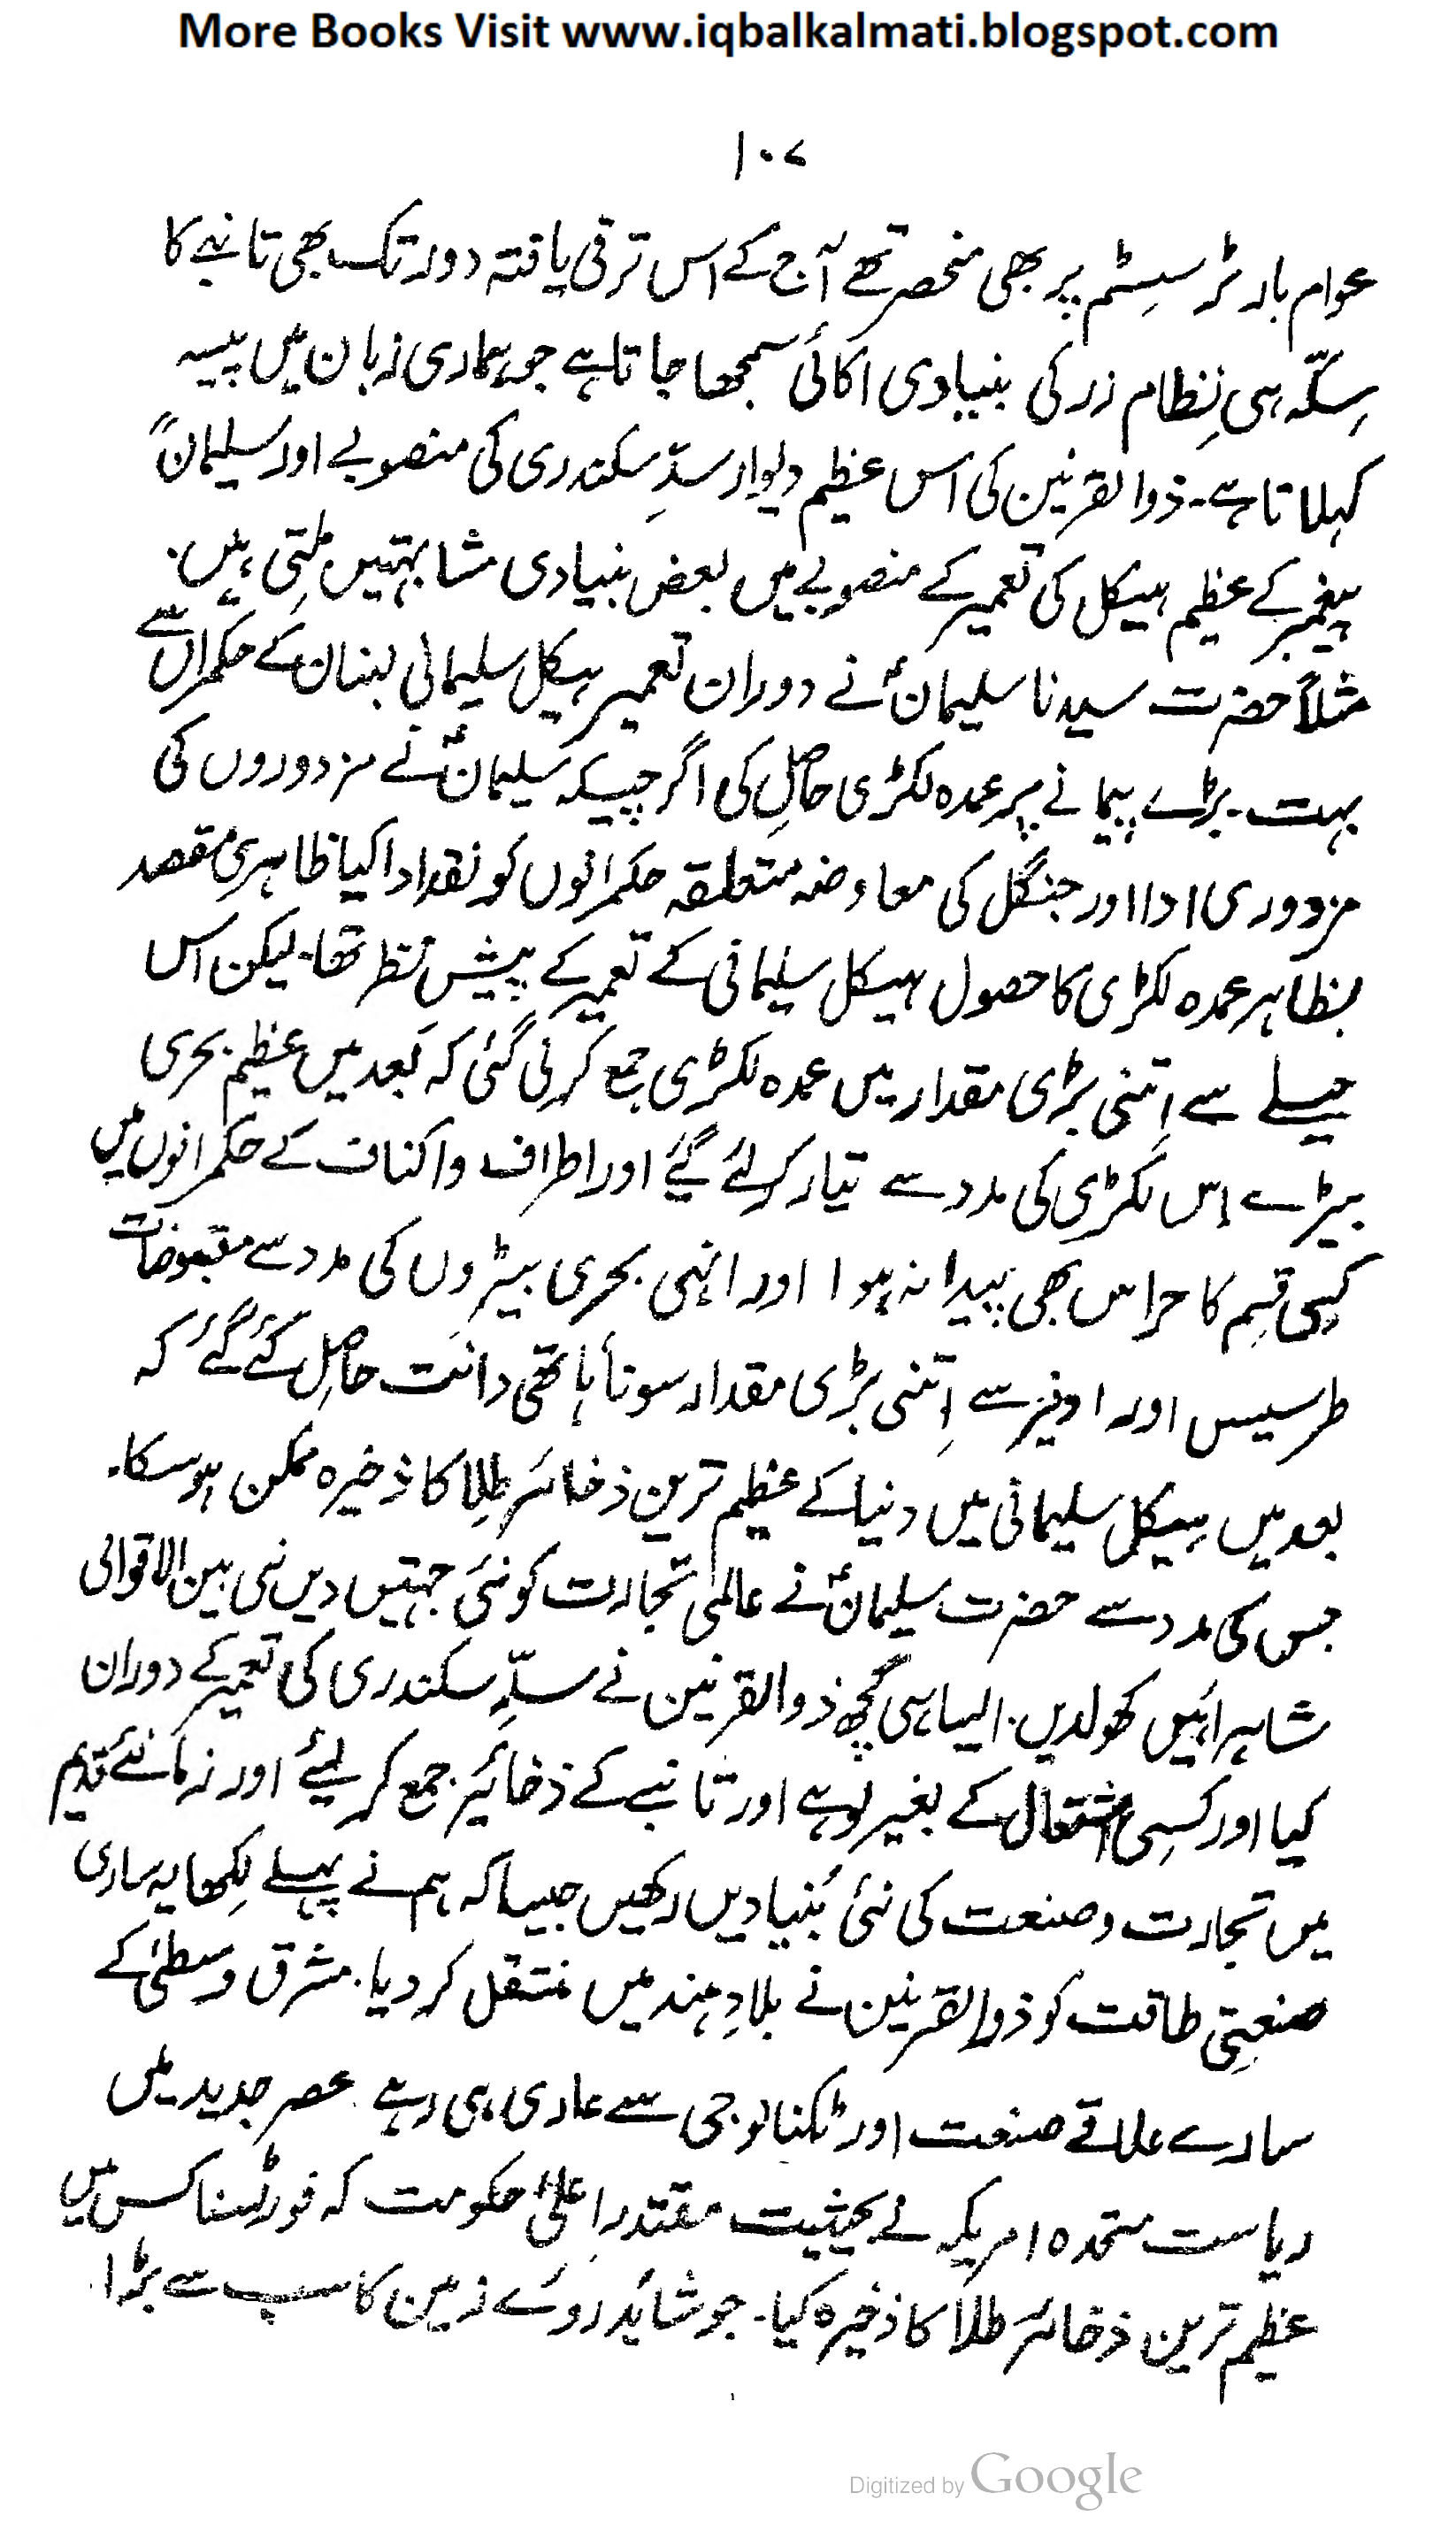 More Books Visit www.iqbalkalmati.blogspot.com
۱۰۷
عوام بارٹر سسٹم پر بھی منحصر تھے آج کے اس ترقی یافتہ دور تک بھی تانبے کا
سِکّہ ہی نِظام زر کی بنیادی اکائی سمجھا جاتا ہے جو ہماری زبان میں پیسہ
کہلاتا ہے۔ ذوالقرنین کی اس عظیم دیوار سدِّ سکندری کی منصوبے اور سلیمانؑ
پیغمبر کے عظیم ہیکل کی تعمیر کے منصوبے میں بعض بنیادی مشابہتیں ملتی ہیں۔
مثلاً حضرت سیدنا سلیمانؑ نے دوران تعمیر ہیکل سلیمانی لبنان کے حکمراں سے
بہت بڑے پیمانے پر عمدہ لکڑی حاصِل کی اگرچیکہ سلیمانؑ نے مزدوروں کی
مزدوری ادا اور جنگل کی معاوضہ متعلقہ حکمرانوں کو نقد ادا کیا ظاہری مقصد
بظاہر عمدہ لکڑی کا حصول ہیکل سلیمانی کے تعمیر کے پیش نظر تھا۔ لیکن اس
حیلے سے اِتنی بڑی مقدار میں عمدہ لکڑی جمع کرلی گئی کہ بعد میں عظیم بحری
بیڑے اِس لکڑی کی مدد سے تیار کرلئے گئے اور اطراف واکناف کے حکمرانوں میں
کسی قِسم کا حراس بھی پیدا نہ ہوا اور انہی بحری بیڑوں کی مدد سے مقبوضات
طرسیس اور اوفیر سے اِتنی بڑی مقدار سونا ہاتھی دانت حاصِل کئے گئے کہ
بعد میں ہیکل سلیمانی میں دنیا کے عظیم ترین ذخائر طِلا کا ذخیرہ ممکن ہوسکا۔
جس کی مدد سے حضرت سلیمانؑ نے عالمی تجارت کو نئی جہتیں دیں نئی بین الاقوامی
شاہرائیں کھولدیں۔ ایسا ہی کچھ ذوالقرنین نے سدِّ سکندری کی تعمیر کے دوران
کیا اور کسِی اشتعال کے بغیر لوہے اور تانبے کے ذخائیر جمع کرلیئے اور زمانئے قدیم
میں تجارت وصنعت کی نئی بُنیادیں رکھیں جیسا کہ ہم نے پہلے لِکھا یہ ساری
صنعتِی طاقت کو ذوالقرنین نے بلادِ ہند میں منتقل کردیا۔ مشرق وسطیٰ کے
سارے علاقے صنعت اور ٹکنالوجی سے عاری ہی رہے۔ عصر جدید میں
ریاست متحدہ امریکہ نے بحیثیت مقتدر اعلیٰ حکومت کہ فورٹ ناکس میں
عظیم ترین ذخائر طلا کا ذخیرہ کیا۔ جو شائد روئے زمین کا سب سے بڑا
Digitized by Google